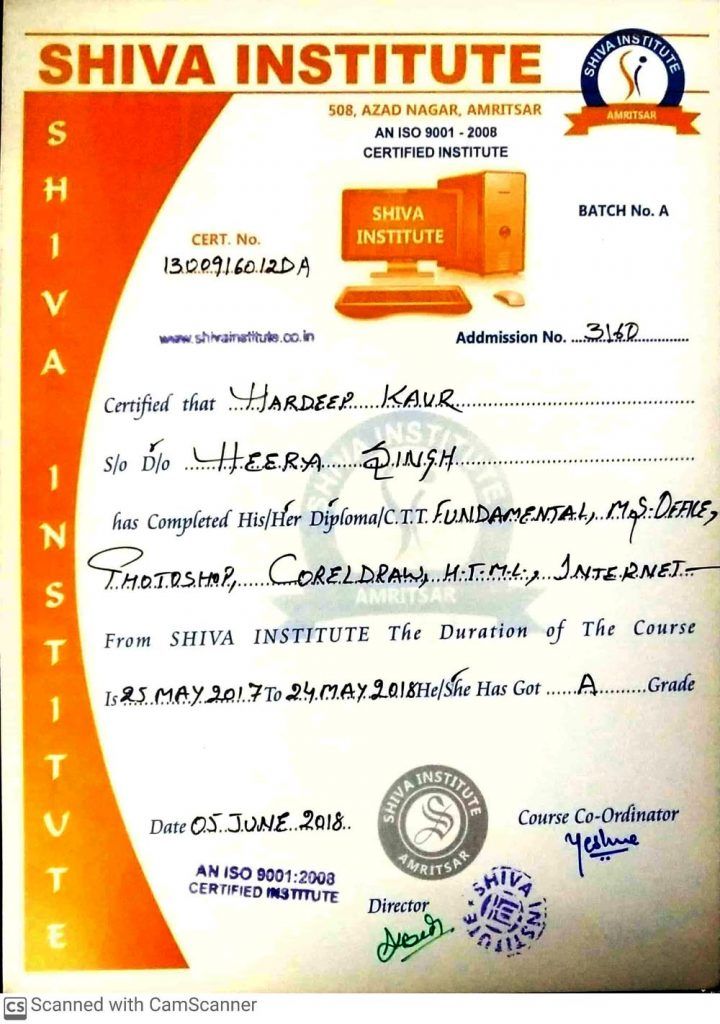 SHIVA INSTITUTE
SHIVA INSTITUTE
AMRITSAR
508, AZAD NAGAR, AMRITSAR
AN ISO 9001 - 2008
CERTIFIED INSTITUTE
SHIVA INSTITUTE
SHIVA
INSTITUTE
BATCH No. A
CERT. No.
1300916012DA
www.shivainstitute.co.in
Addmission No. ....3160................
Certified that ...HARDEEP KAUR................
S/o D/o ...HEERA SINGH................
has Completed His/Her Diploma/C.T.T. FUNDAMENTAL, M.S-OFFICE,
PHOTOSHOP, CORELDRAW, H.T.M.L., INTERNET
From SHIVA INSTITUTE The Duration of The Course
Is 25 MAY 2017 To 24 MAY 2018 He/She Has Got ......A.........Grade
SHIVA INSTITUTE
AMRITSAR
Date 05 JUNE 2018
SHIVA INSTITUTE
S
AMRITSAR
Course Co-Ordinator
AN ISO 9001:2008
CERTIFIED INSTITUTE
Director
SHIVA INSTITUTE
CS Scanned with CamScanner